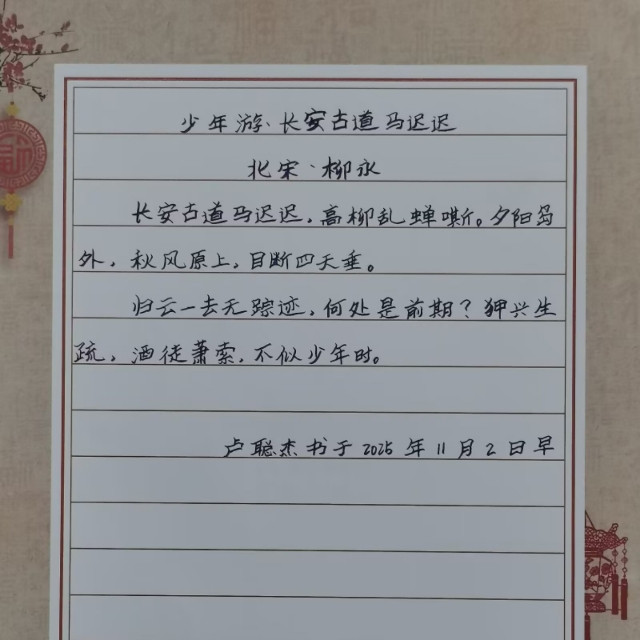 少年游·长安古道马迟迟
北宋·柳永
长安古道马迟迟，高柳乱蝉嘶。夕阳岛
外，秋风原上，目断四天垂。
归云一去无踪迹，何处是前期？狎兴生
疏，酒徒萧索，不似少年时。
卢聪杰书于2025年11月2日早